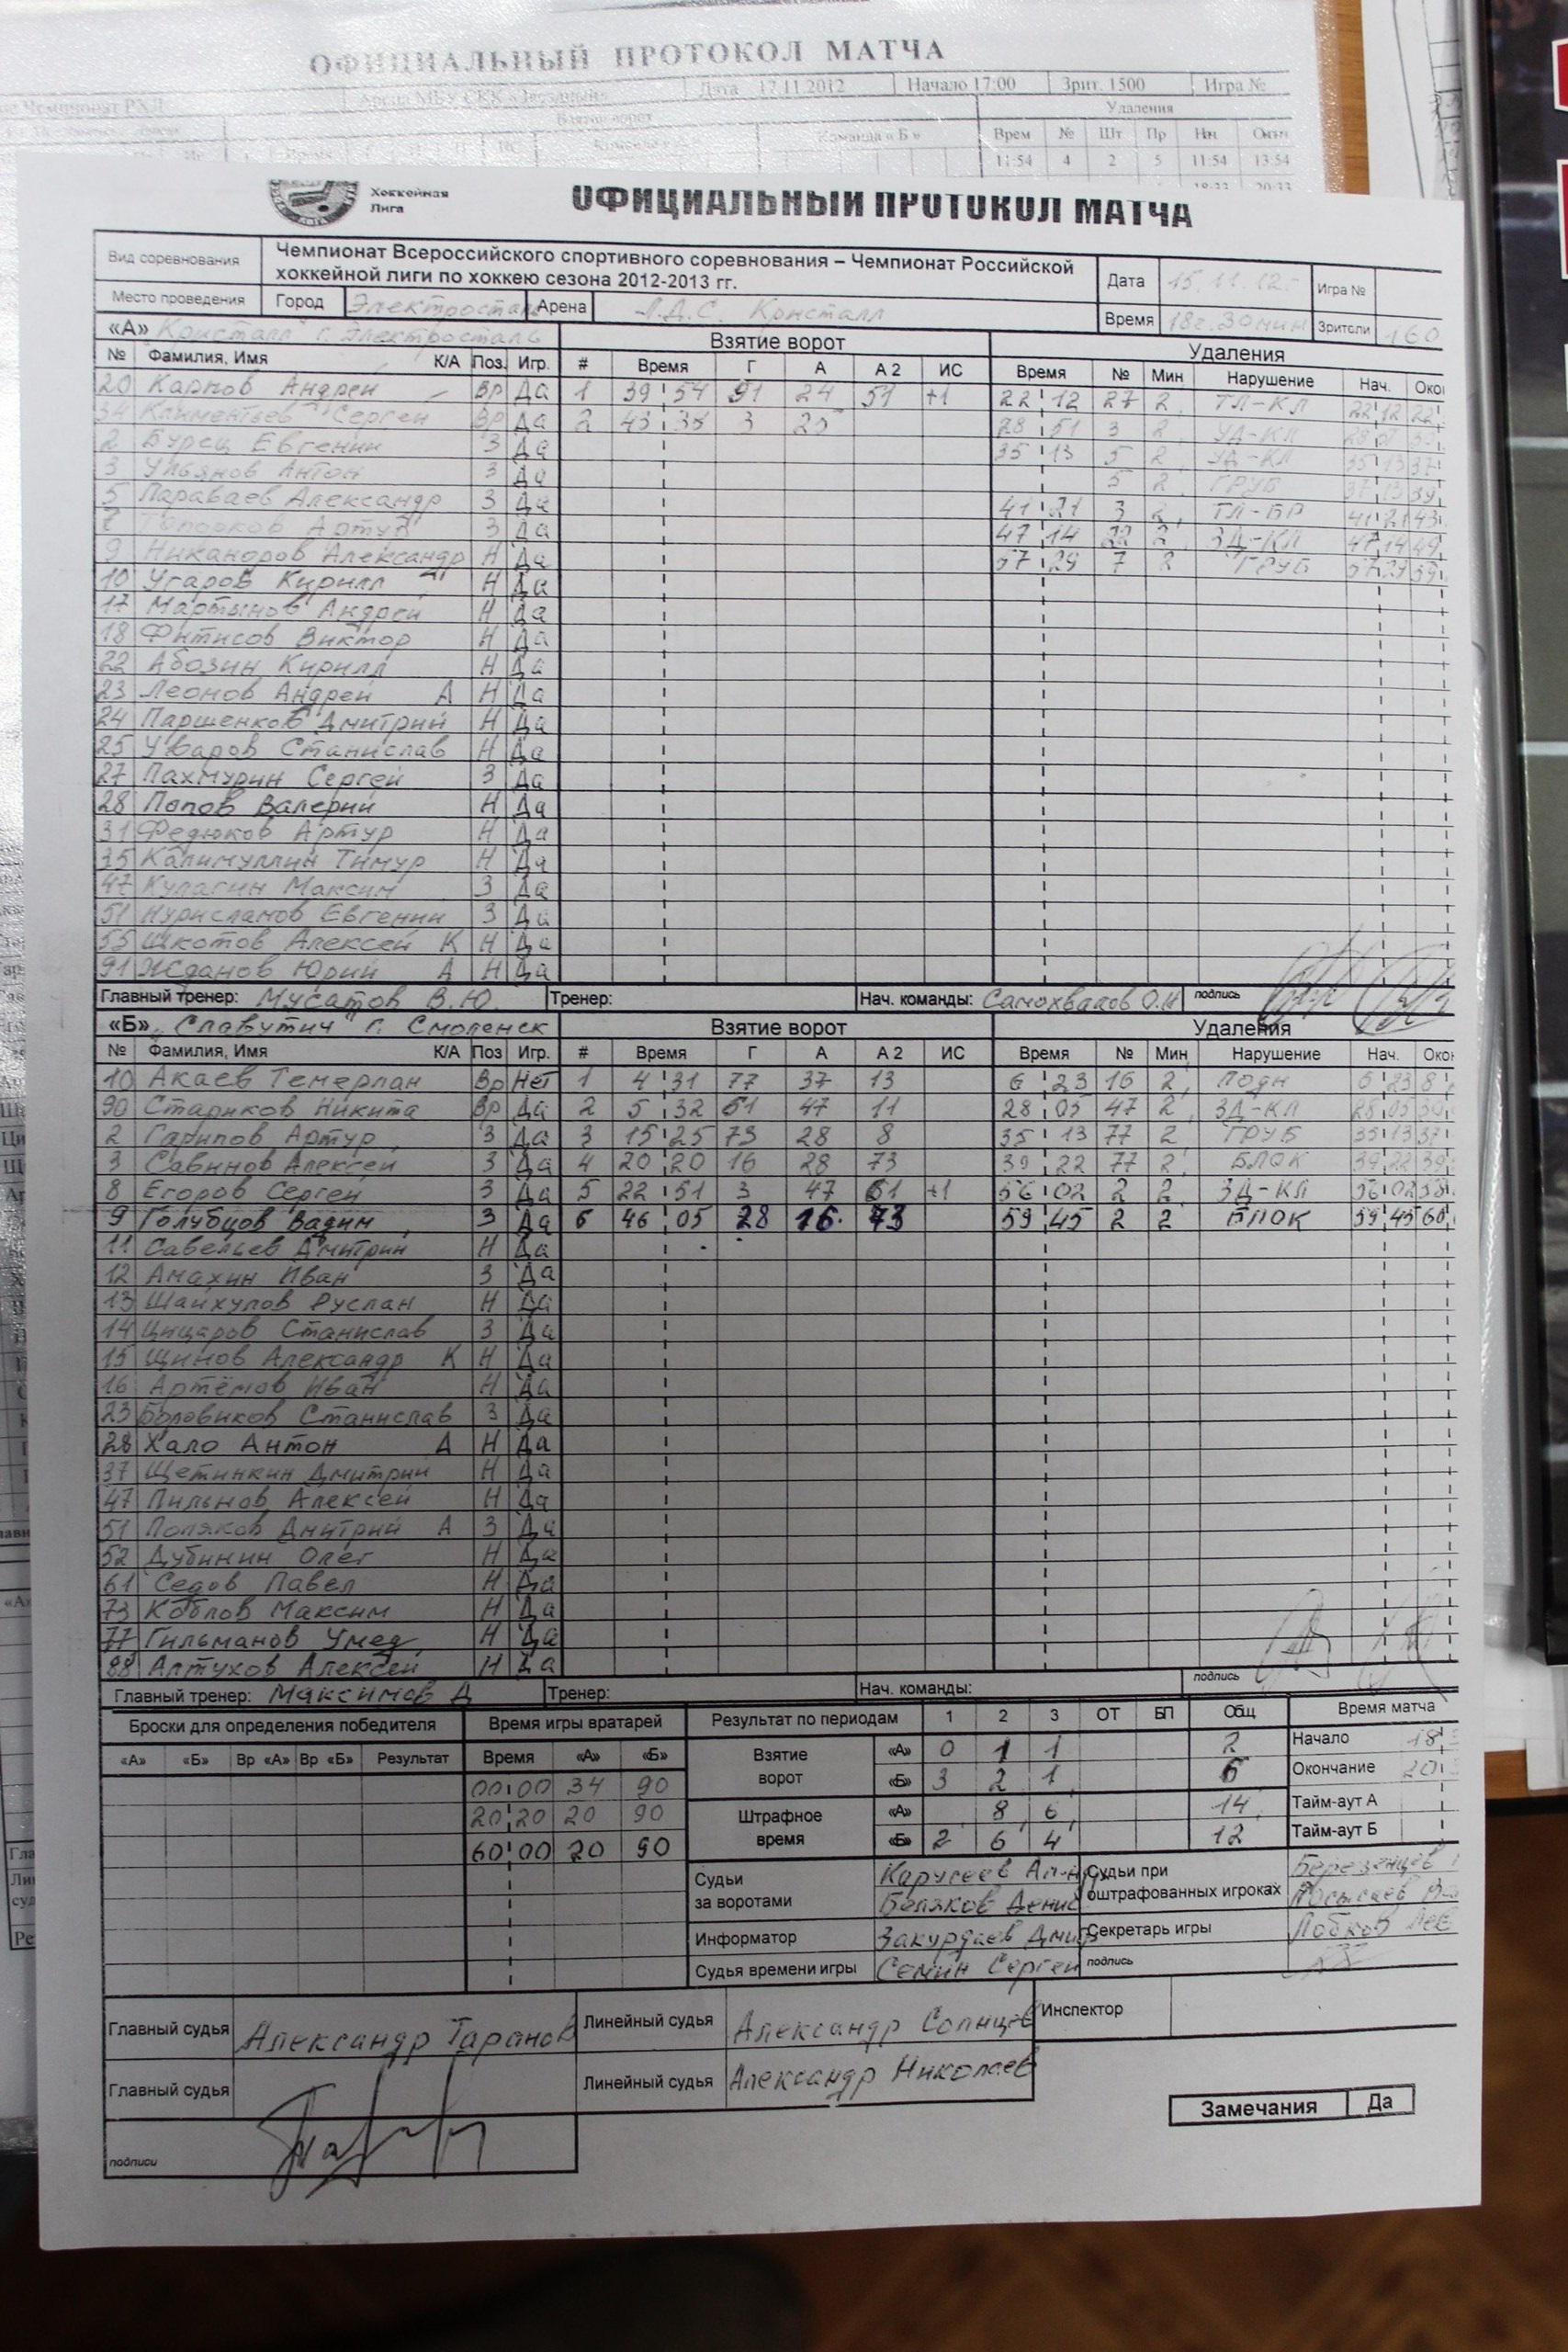 ОФИЦИАЛЬНЫЙ ПРОТОКОЛ МАТЧА
Чемпионат РХЛ Арена МБУ СКК «Звездный» Дата 17.11.2012 Начало 17:00 Зрит. 1500 Игра №
Взятие ворот Удаления
Команда «Б» Врем № Шт Пр Нач Оконч
11:54 4 2 5 11:54 13:54
Хоккейная
Лига
ОФИЦИАЛЬНЫЙ ПРОТОКОЛ МАТЧА
Вид соревнования Чемпионат Всероссийского спортивного соревнования – Чемпионат Российской
хоккейной лиги по хоккею сезона 2012-2013 гг. Дата 15.11.12г Игра №
Место проведения Город Электросталь Арена Л.Д.С. Кристалл Время 18г.30мин Зрители 160
«А» Кристалл г. Электросталь Взятие ворот Удаления
№ Фамилия, Имя К/А Поз. Игр. # Время Г А А 2 ИС Время № Мин Нарушение Нач. Окон
20 Карпов Андрей Вр Да 1 39 54 91 24 51 +1 22 12 27 2 ТЛ-КЛ 22 12 22
34 Климентьев Сергей Вр Да 2 43 38 3 25 28 51 3 2 УД-КЛ
2 Бурец Евгений З Да 35 13 5 2 УД-КЛ 35 13 37
3 Ульянов Антон З Да 5 2 ГРУБ 37 13 39
5 Параваев Александр З Да 41 21 3 2 ТЛ-БР 41 21 43
7 Топорков Артур З Да 47 14 22 2 ЗД-КЛ 47 14 49
9 Никаноров Александр Н Да 57 29 7 2 ГРУБ 57 29 59
10 Угаров Кирилл Н Да
17 Мартынов Андрей Н Да
18 Фитисов Виктор Н Да
22 Абозин Кирилл Н Да
23 Леонов Андрей А Н Да
24 Паршенков Дмитрий Н Да
25 Уваров Станислав Н Да
27 Пахмурин Сергей З Да
28 Попов Валерий Н Да
31 Федюков Артур Н Да
35 Калимуллин Тимур Н Да
47 Кулагин Максим З Да
51 Нурисламов Евгений З Да
55 Шкотов Алексей К Н Да
91 Жданов Юрий А Н Да
Главный тренер: Мусатов В.Ю. Тренер: Нач. команды: Самохвалов О.Н подпись
«Б» „Славутич" г. Смоленск Взятие ворот Удаления
№ Фамилия, Имя К/А Поз Игр. # Время Г А А 2 ИС Время № Мин Нарушение Нач. Окон
10 Акаев Темерлан Вр Нет 1 4 31 77 37 13 6 23 16 2 ПОДН 6 23 8
90 Стариков Никита Вр Да 2 5 32 61 47 11 28 05 47 2 ЗД-КЛ 28 05 30
2 Гарипов Артур З Да 3 15 25 73 28 8 35 13 77 2 ГРУБ 35 13 37
3 Савинов Алексей З Да 4 20 20 16 28 73 39 22 77 2 БЛОК 39 22 39
8 Егоров Сергей З Да 5 22 51 3 47 61 +1 56 02 2 2 ЗД-КЛ 56 02 58
9 Голубцов Вадим З Да 6 46 05 28 16 73 59 45 2 2 БЛОК 59 45 60
11 Савельев Дмитрий Н Да
12 Амахин Иван З Да
13 Шайхулов Руслан Н Да
14 Цицаров Станислав З Да
15 Щинов Александр К Н Да
16 Артёмов Иван Н Да
23 Боровиков Станислав З Да
28 Хало Антон А Н Да
37 Щетинкин Дмитрий Н Да
47 Пильнов Алексей Н Да
51 Поляков Дмитрий А З Да
52 Дубинин Олег Н Да
61 Седов Павел Н Да
73 Коблов Максим Н Да
77 Гильманов Умед Н Да
88 Алтухов Алексей Н Да
Главный тренер: Максимов Д Тренер: Нач. команды: подпись
Броски для определения победителя Время игры вратарей Результат по периодам 1 2 3 ОТ БП Общ Время матча
«А» «Б» Вр «А» Вр «Б» Результат Время «А» «Б» Взятие ворот «А» 0 1 1 2 Начало 18
00 00 34 90 «Б» 3 2 1 6 Окончание 20
20 20 20 90 Штрафное время «А» 8 6 14 Тайм-аут А
60 00 20 90 «Б» 2 6 4 12 Тайм-аут Б
Судьи за воротами Карусеев Ал-др Судьи при оштрафованных игроках Березенцев
Беляков Денис
Информатор Закурдаев Дмит Секретарь игры Лобков
Судья времени игры Семин Сергей подпись
Главный судья Александр Таранов Линейный судья Александр Солнцев Инспектор
Главный судья Линейный судья Александр Николаев
Замечания Да
подписи